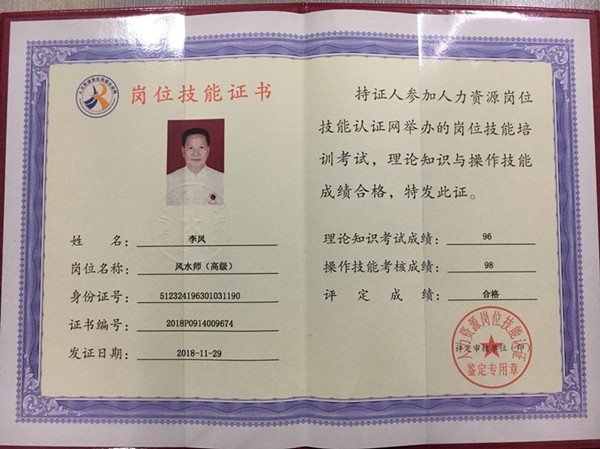 岗位技能证书
姓名：李风
岗位名称：风水师（高级）
身份证号：512324196301031190
证书编号：2018P0914009674
发证日期：2018-11-29
持证人参加人力资源岗位
技能认证网举办的岗位技能培
训考试，理论知识与操作技能
成绩合格，特发此证。
理论知识考试成绩：96
操作技能考核成绩：98
评定成绩：合格
评定审核单位（印）
人力资源岗位技能认证
鉴定专用章